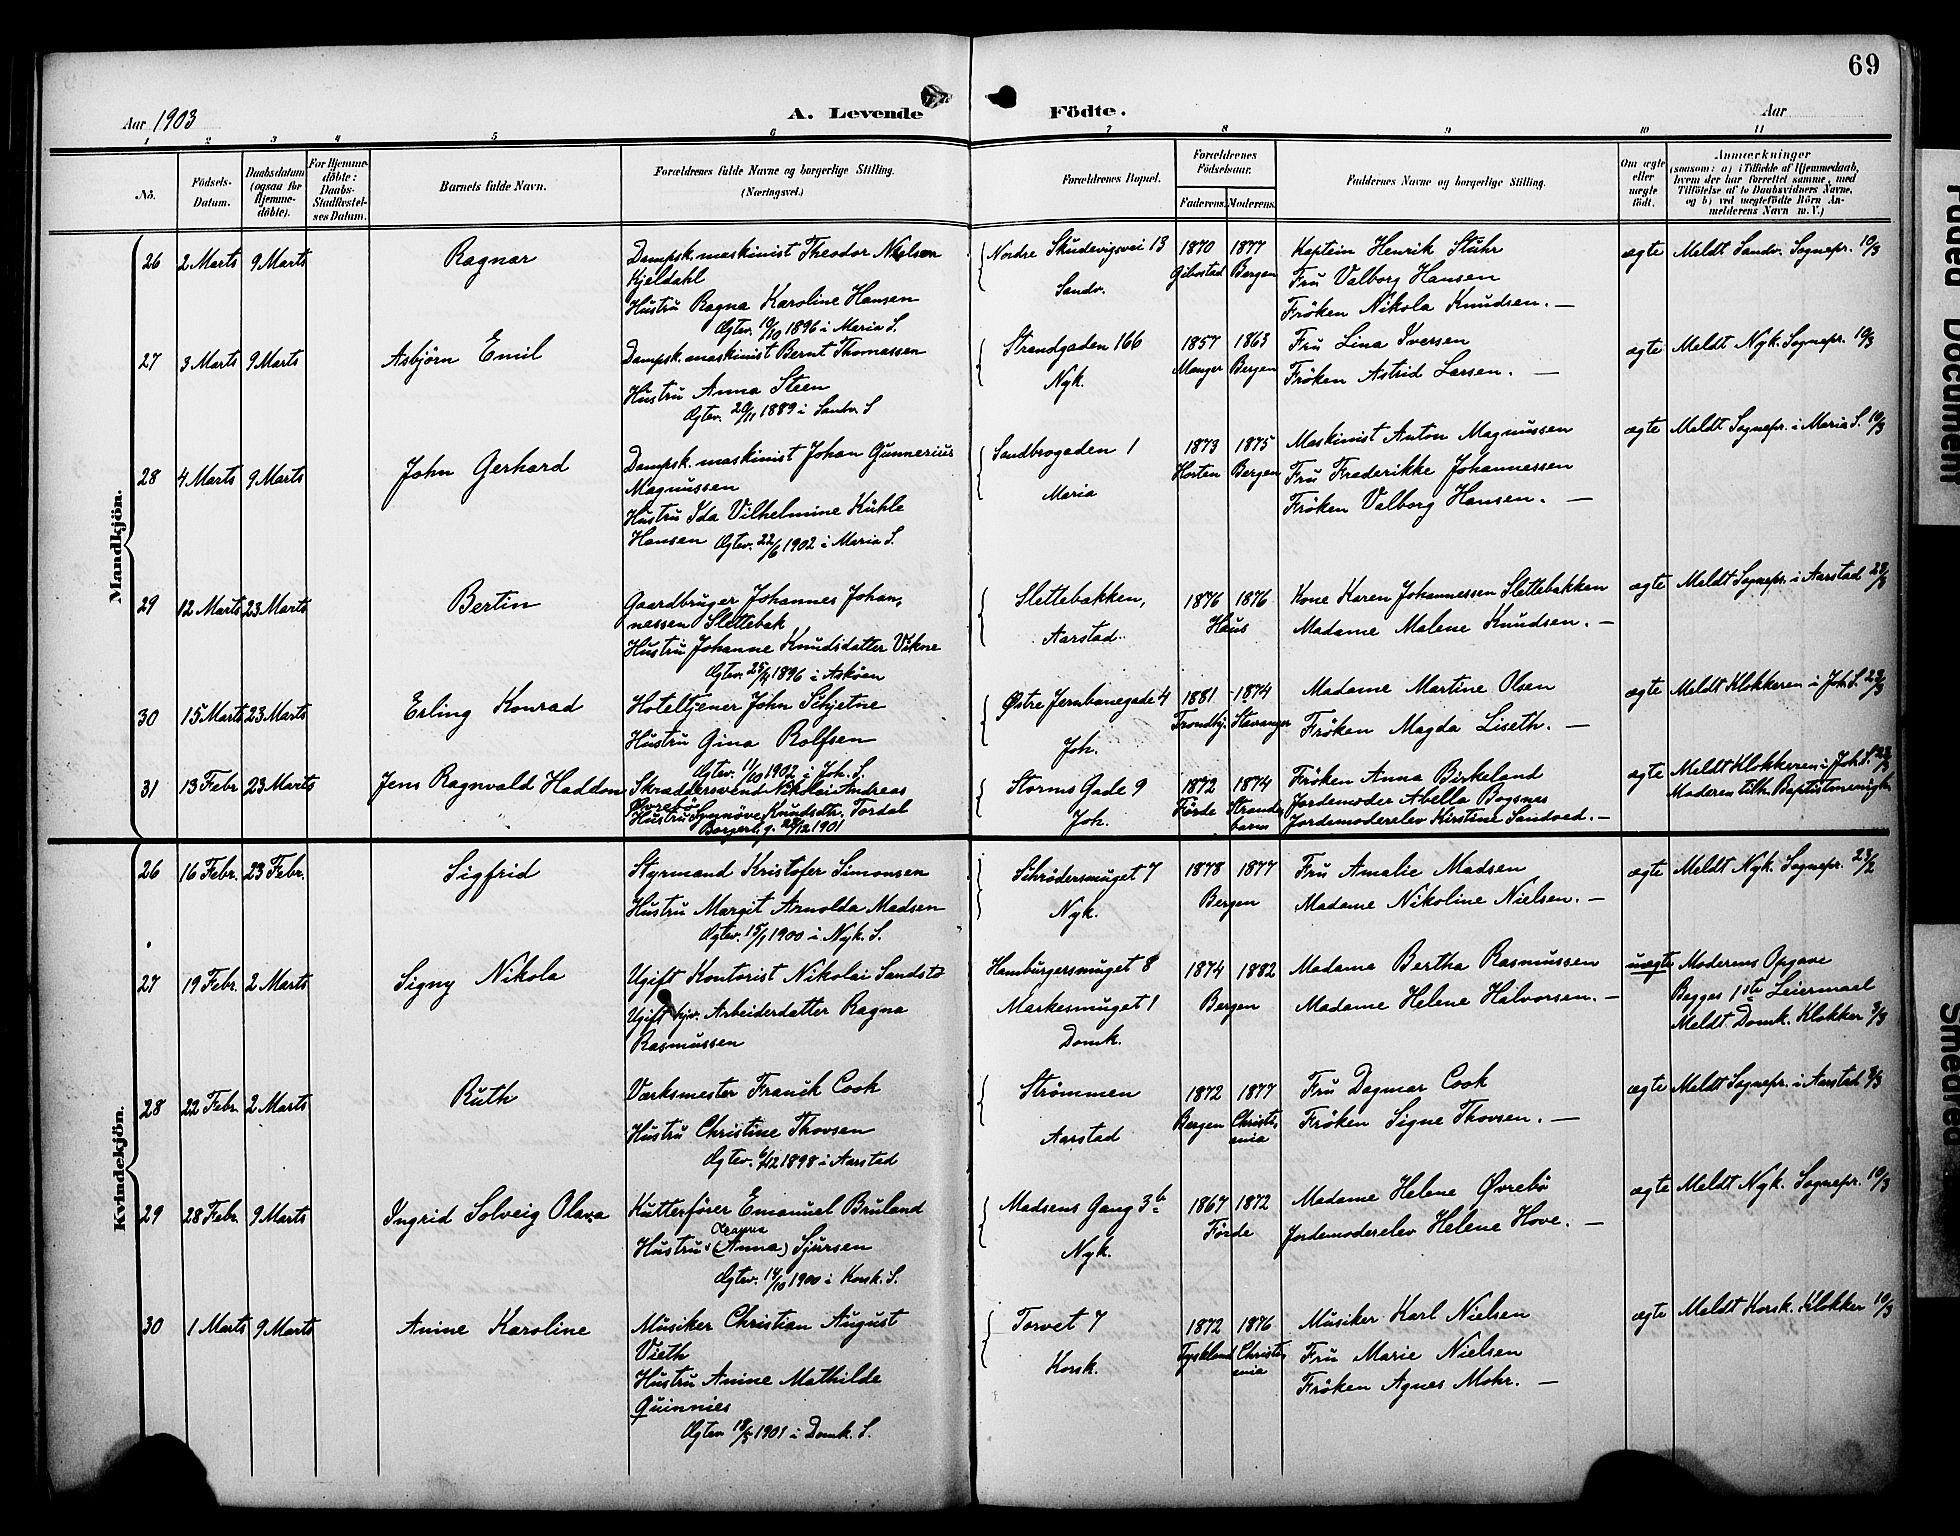 69
Aar 1903
A. Levende Födte.
Aar
1 2 3 4 5 6 7 8 9 10 11
No.
Födsels-Datum.
Daabsdatum (ogsaa for Hjemme-döbte).
For Hjemme-döbte: Daabs-Stadfæstel-ses Datum.
Barnets fulde Navn.
Forældrenes fulde Navne og borgerlige Stilling.
(Næringsvei.)
Forældrenes Bopæl.
Forældrenes Födselsaar.
Faderens. Moderens.
Faddernes Navne og borgerlige Stilling.
Om ægte eller uægte født.
Anmærkninger
(saasom: a) i Tilfælde af Hjemmedaab,
hvem der har forrettet samme, med
Tilföielse af to Daabsvidners Navne,
og b) ved uægtefödte Börn An-
melderens Navn m. V.)
Mandkjön.
26 2 Marts 9 Marts Ragnar
Dampsk. maskinist Theodor Nielsen
Kjeldahl
Hustru Ragna Karoline Hansen
Ægtev. 19/10 1896 i Maria S.
Nordre Skudevigsvei 13
Sandv.
1870 1877
Gibostad Bergen
Kaptein Henrik Stuhr
Fru Valborg Hansen
Fröken Nikola Knudsen. —
ægte Meldt Sandv. Sognepr. 10/3
27 3 Marts 9 Marts Asbjörn Emil
Dampsk. maskinist Bernt Thomassen
Hustru Anna Steen
Ægtev. 20/11 1889 i Sandv. S
Strandgaden 166
Nyk.
1857 1863
Manger Bergen
Fru Lina Iversen
Fröken Astrid Larsen. —
ægte Meldt Nyk. Sognepr. 10/3
28 4 Marts 9 Marts John Gerhard
Dampsk. maskinist Johan Gunnerius
Magnussen
Hustru Ida Vilhelmine Kühle
Hansen Ægtev. 22/6 1902 i Maria S.
Sandbrogaden 1
Maria
1873 1875
Horten Bergen
Maskinist Anton Magnussen
Fru Frederikke Johannessen
Fröken Valborg Hansen. —
ægte Meldt Sognepr. i Maria S. 10/3
29 12 Marts 23 Marts Bertin
Gaardbruger Johannes Johan,
nessen Slettebak
Hustru Johanne Knudsdatter Vikne
Ægtev. 25/4 1896 i Askøen
Slettebakken,
Aarstad
1876 1876
Haus
Kone Karen Johannessen Slettebakken
Madame Malene Knudsen. —
ægte Meldt Sognepr. i Aarstad 23/3
30 15 Marts 23 Marts Erling Konrad
Hoteltjener John Schjetne
Hustru Gina Rolfsen
Ægtev. 11/10 1902 i Joh. S.
Østre Jernbanegade 4
Joh.
1881 1874
Trondhj. Stavanger
Madame Martine Olsen
Fröken Magda Liseth. —
ægte Meldt Klokkeren i Joh. S. 23/3
31 13 Febr 23 Marts Jens Ragnvald Haddon
Skræddersvend Nikolai Andreas
Øvrebø
Hustru Synnöve Knudsdtr. Tordal
Borgerlig. 1901
Storms Gade 9
Joh.
1872 1874
Förde Strande,
barm
Fröken Anna Birkeland
Jordemoder Abella Bogsnes
Jordemoderelev Kirstine Sandved. —
ægte Meldt Klokkeren i Joh. S. 23/3
Moderen tilh. Baptistmenigh
Kvindekjön.
26 16 Febr. 23 Febr. Sigfrid
Styrmand Kristofer Simonsen
Hustru Margit Arnolda Madsen
Ægtev. 15/1 1900 i Nyk. S.
Schrödersmuget 7
Nyk.
1878 1877
Bergen
Fru Amalie Madsen
Madame Nikoline Nielsen. —
ægte Meldt Nyk. Sognepr. 23/2
27 19 Febr. 2 Marts Signy Nikola
Ugift Kontorist Nikolai Sandstø
Ugift hjv. Arbeiderdatter Ragna
Rasmussen
Hamburgersmuget 8
Markesmuget 1
Domk.
1874 1882
Bergen
Madame Bertha Rasmussen
Madame Helene Halvorsen. —
uægte Moderens Opgave
Begges 1ste Leiermaal
Meldt Domk. Klokker 3/3
28 22 Febr. 2 Marts Ruth
Værksmester Franck Cook
Hustru Christine Thovsen
Ægtev. 6/12 1898 i Aarstad
Strømmen
Aarstad
1872 1877
Bergen Christi,
ania
Fru Dagmar Cook
Fröken Signe Thovsen. —
ægte Meldt Sognepr. i Aarstad 3/3
29 28 Febr. 9 Marts Ingrid Solveig Olava
Kutterförer Emanuel Bruland
Hustru (Anna) Sjursen
Ægtev. 14/10 1900 i Korsk. S.
Madsens Gang 3b
Nyk.
1867 1872
Førde
Madame Helene Øvrebö
Jordemoderelev Helene Hove. —
ægte Meldt Nyk. Sognepr. 10/3
30 1 Marts 9 Marts Anine Karoline
Musiker Christian August
Vieth
Hustru Anine Mathilde
Quinnies
Ægtev 18/5 1901 i Domk. S.
Torvet 7
Korsk.
1872 1876
Tyskland Christi,
ania
Musiker Karl Nielsen
Fru Marie Nielsen
Fröken Agnes Mohr. —
ægte Meldt Korsk. Klokker 10/3
Faded Document
Smeared